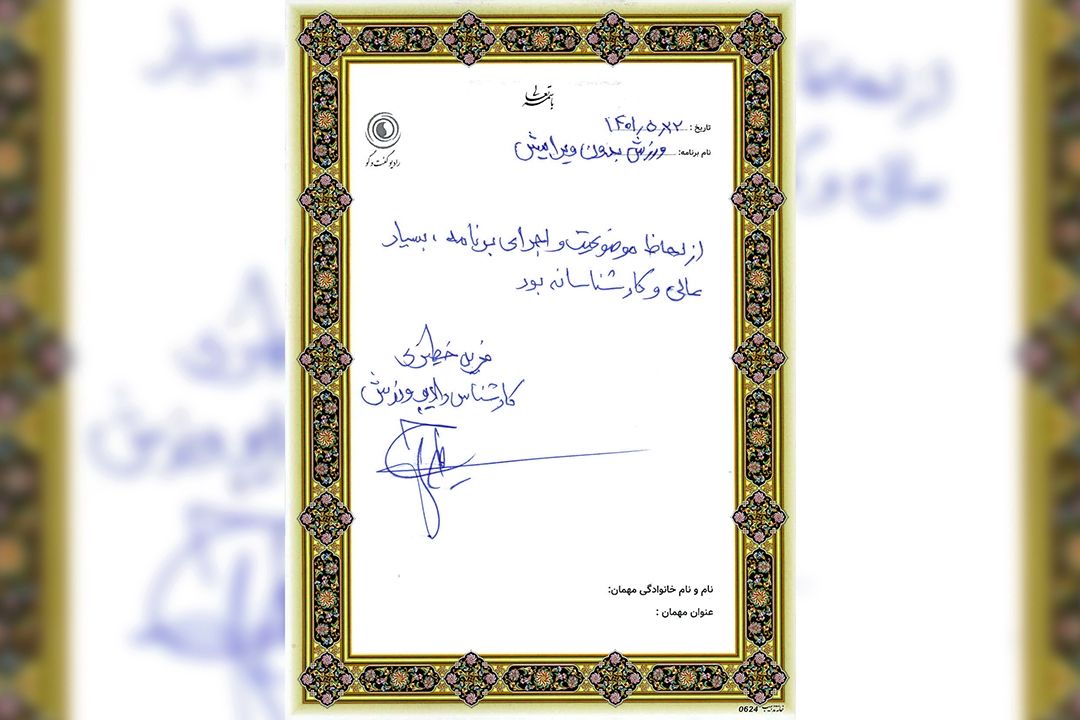 باسمه تعالی
رادیو گفت و گو
تاریخ: ۱۴۰۱٫۵٫۲۲
نام برنامه: ورزش بدون ویرایش
از لحاظ موضوعیت و اجرای برنامه ، بسیار
عالی و کارشناسانه بود
کارشناس رادیو ورزش
نام و نام خانوادگی مهمان:
عنوان مهمان :
0624